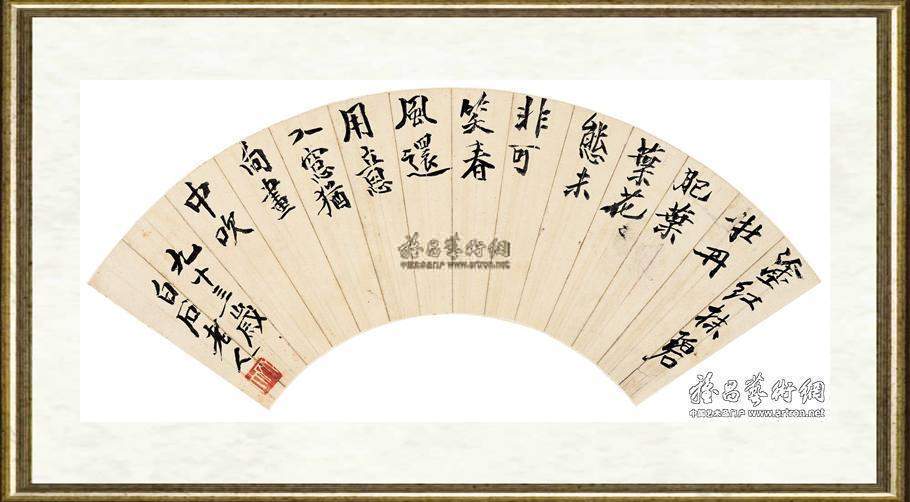 塗紅抹碧
牡丹
肥葉
葉花々
態未
非可
笑春
風還
用意
入窓猶
向畫
中吹
九十三歲
白石老人
雅昌藝術網
中国艺术品门户 www.artron.net
雅昌藝術網
中国艺术品门户 www.artron.net